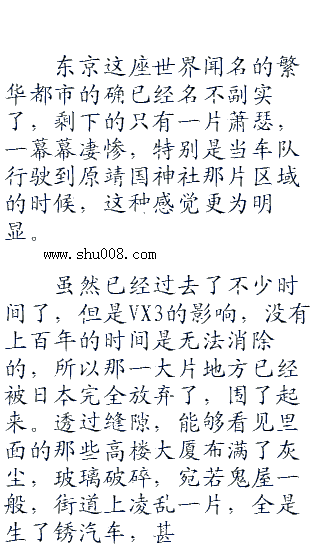 东京这座世界闻名的繁
华都市的确已经名不副实
了，剩下的只有一片萧瑟，
一幕幕凄惨，特别是当车队
行驶到原靖国神社那片区域
的时候，这种感觉更为明
显。
www.shu008.com
虽然已经过去了不少时
间了，但是VX3的影响，没有
上百年的时间是无法消除
的，所以那一大片地方已经
被日本完全放弃了，围了起
来。透过缝隙，能够看见里
面的那些高楼大厦布满了灰
尘，玻璃破碎，宛若鬼屋一
般，街道上凌乱一片，全是
生了锈汽车，甚